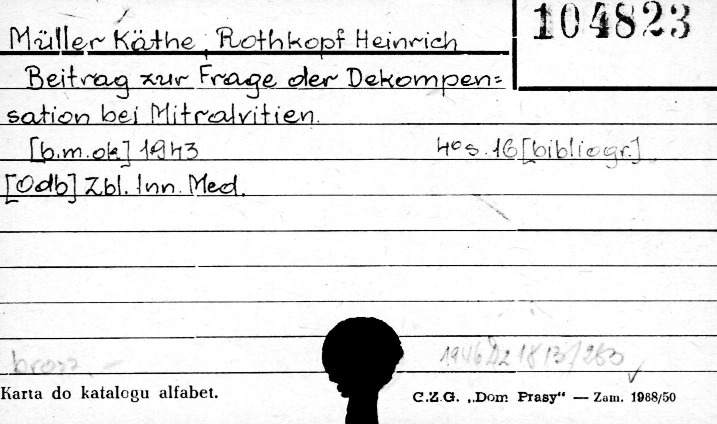 104823
Müller Käthe, Rothkopf Heinrich
Beitrag zur Frage der Dekompen=
sation bei Mitralvitien.
[b.m.ok] 1943 4° s. 16 [bibliogr.]
[Odb] Zbl. Inn. Med.
brosz. –
Karta do katalogu alfabet.
C.Z.G. „Dom Prasy“ — Zam. 1988/50